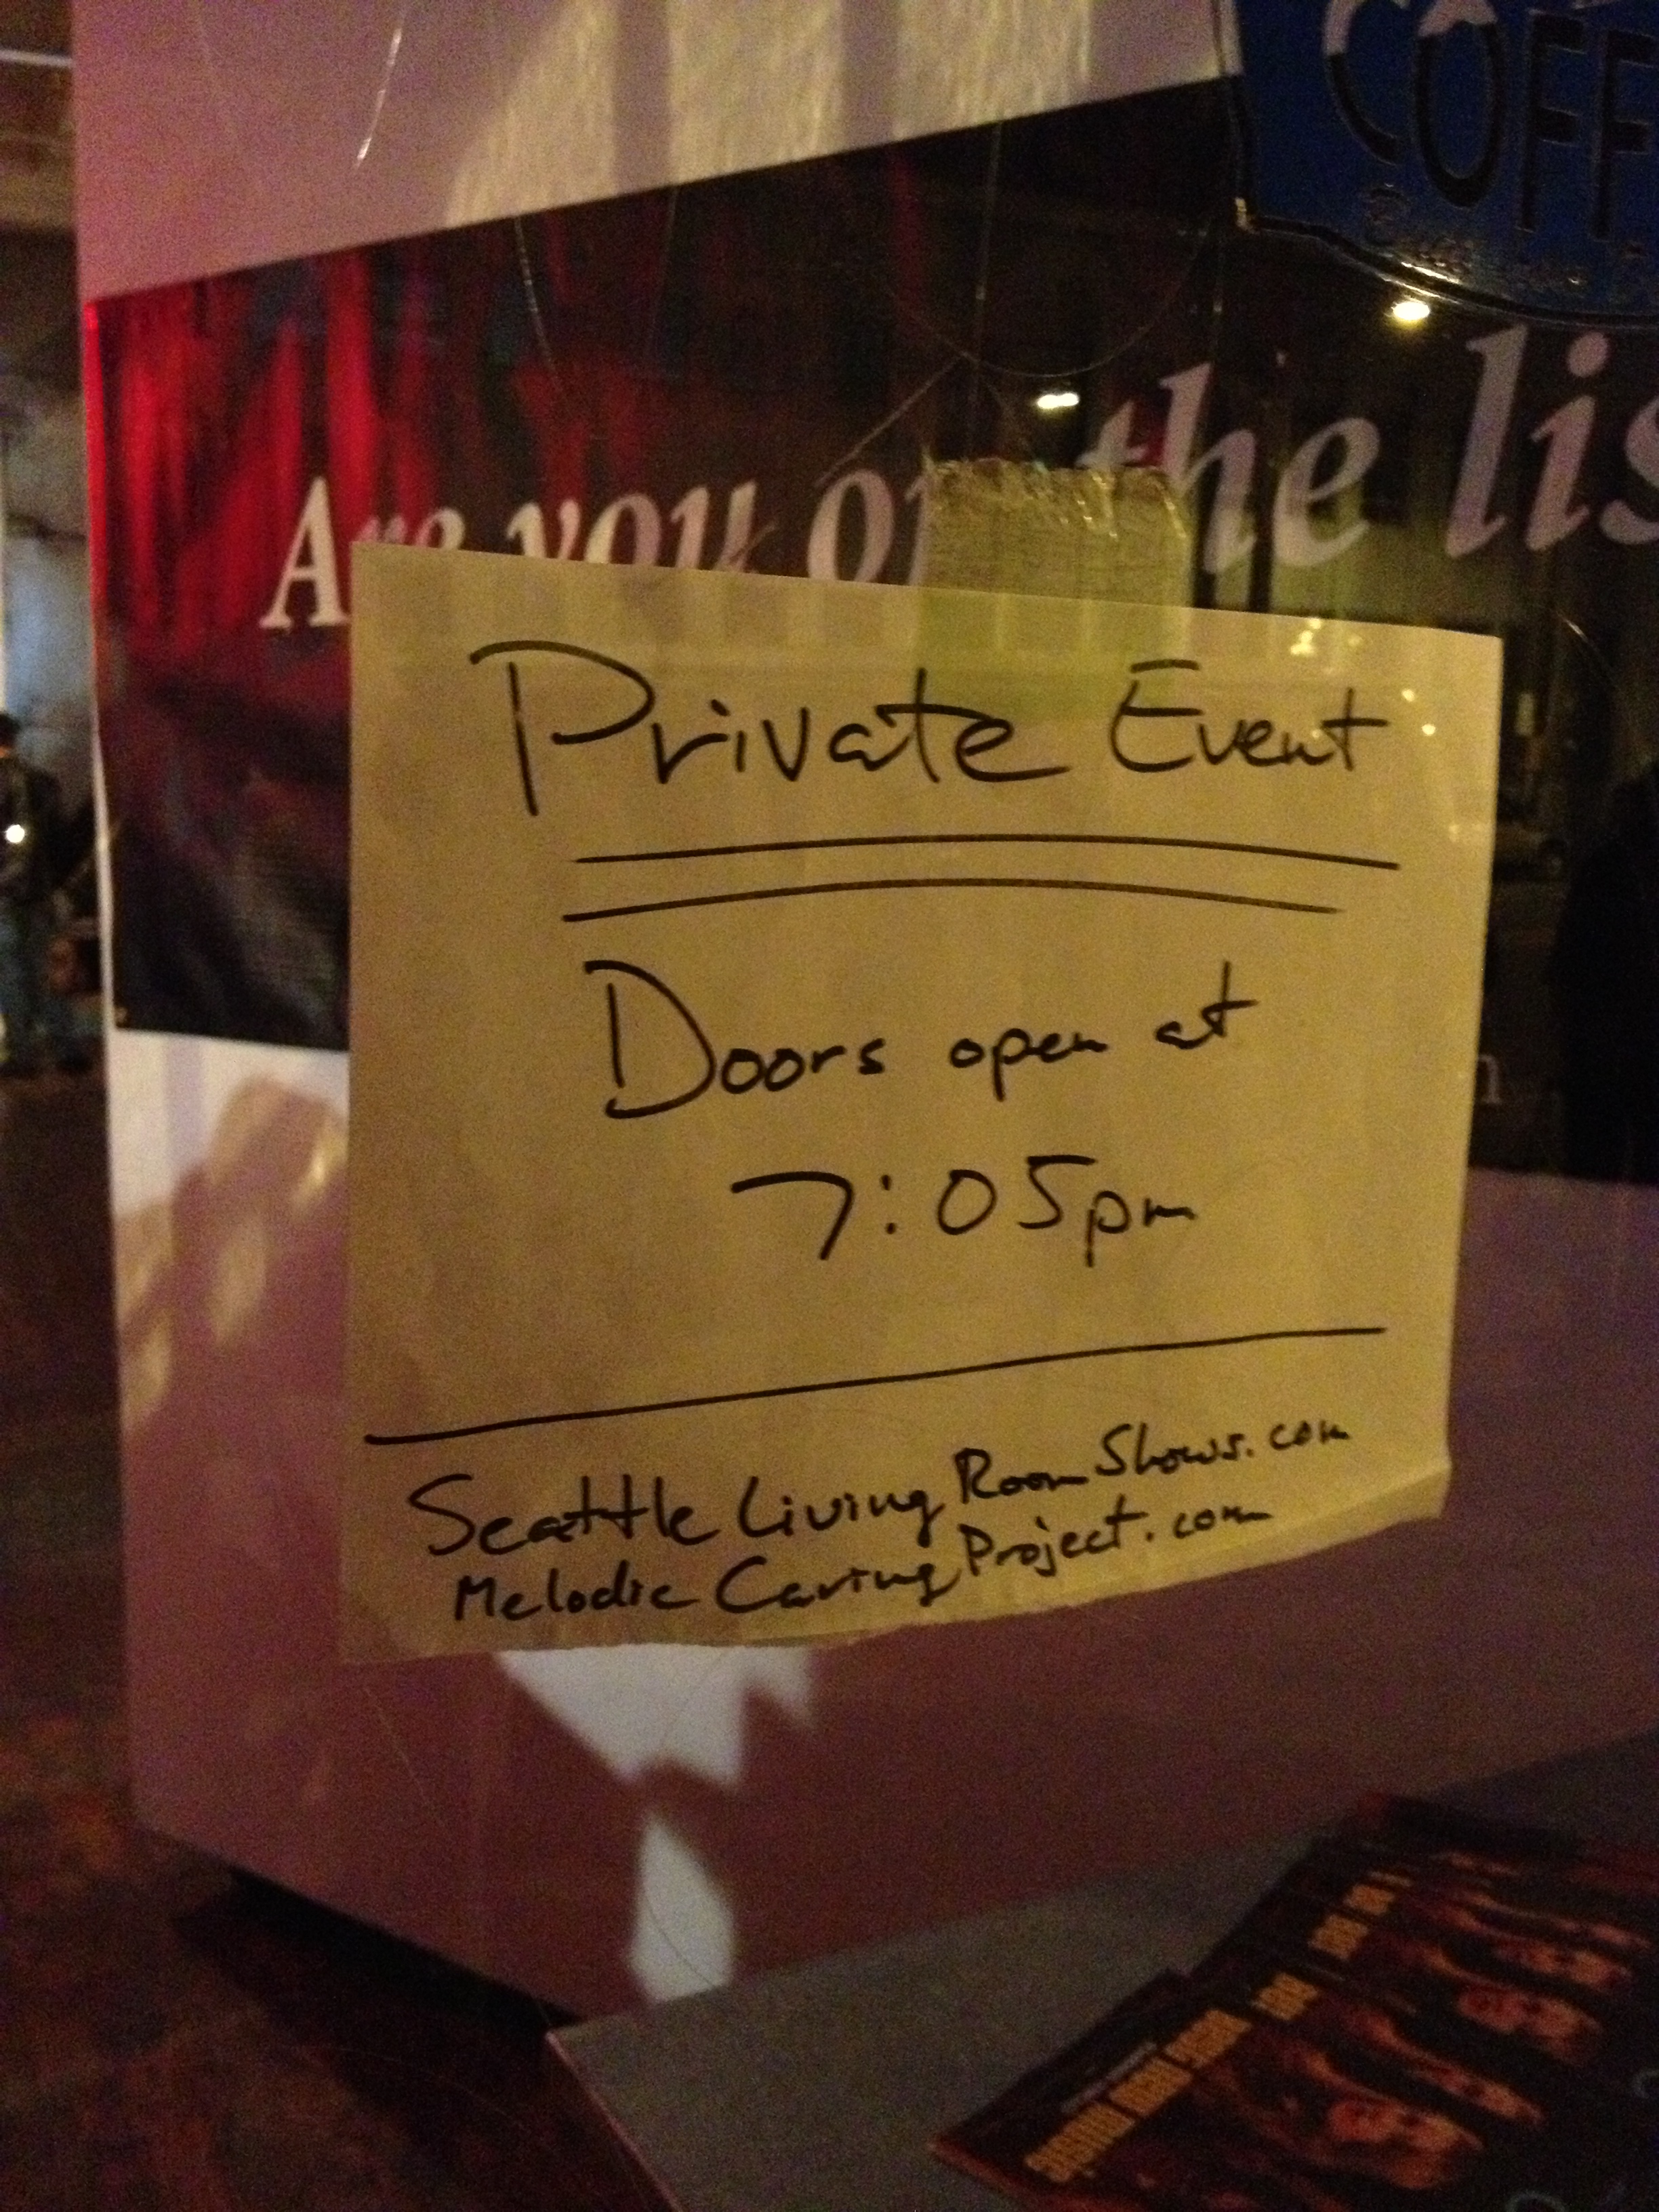 COFF
Are you on the lis
Private Event
Doors open at
7:05pm
Seattle Living Room Shows.com
Melodic Caring Project.com